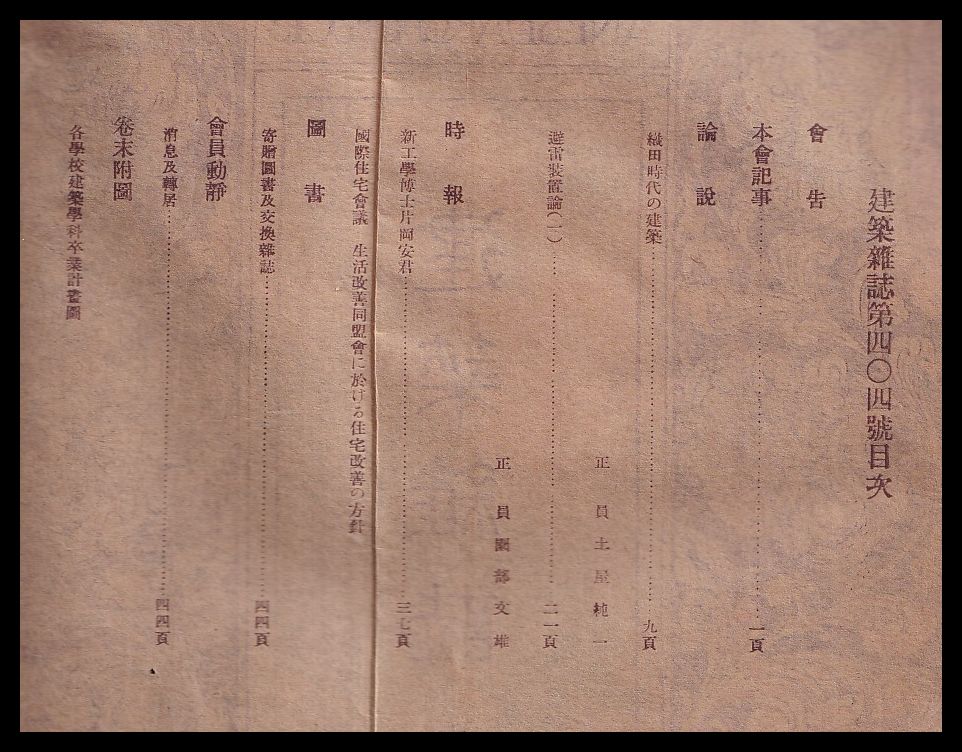 建築雜誌第四〇四號目次
會告
本會記事……一頁
論說
織田時代の建築……九頁
正員 土屋純一
避雷裝置論(一)……二一頁
正員 園部文雄
時報
新工學博士片岡安君……三七頁
國際住宅會議 生活改善同盟會に於ける住宅改善の方針
圖書
寄贈圖書及交換雜誌……四四頁
會員動靜
消息及轉居……四四頁
卷末附圖
各學校建築學科卒業計畫圖